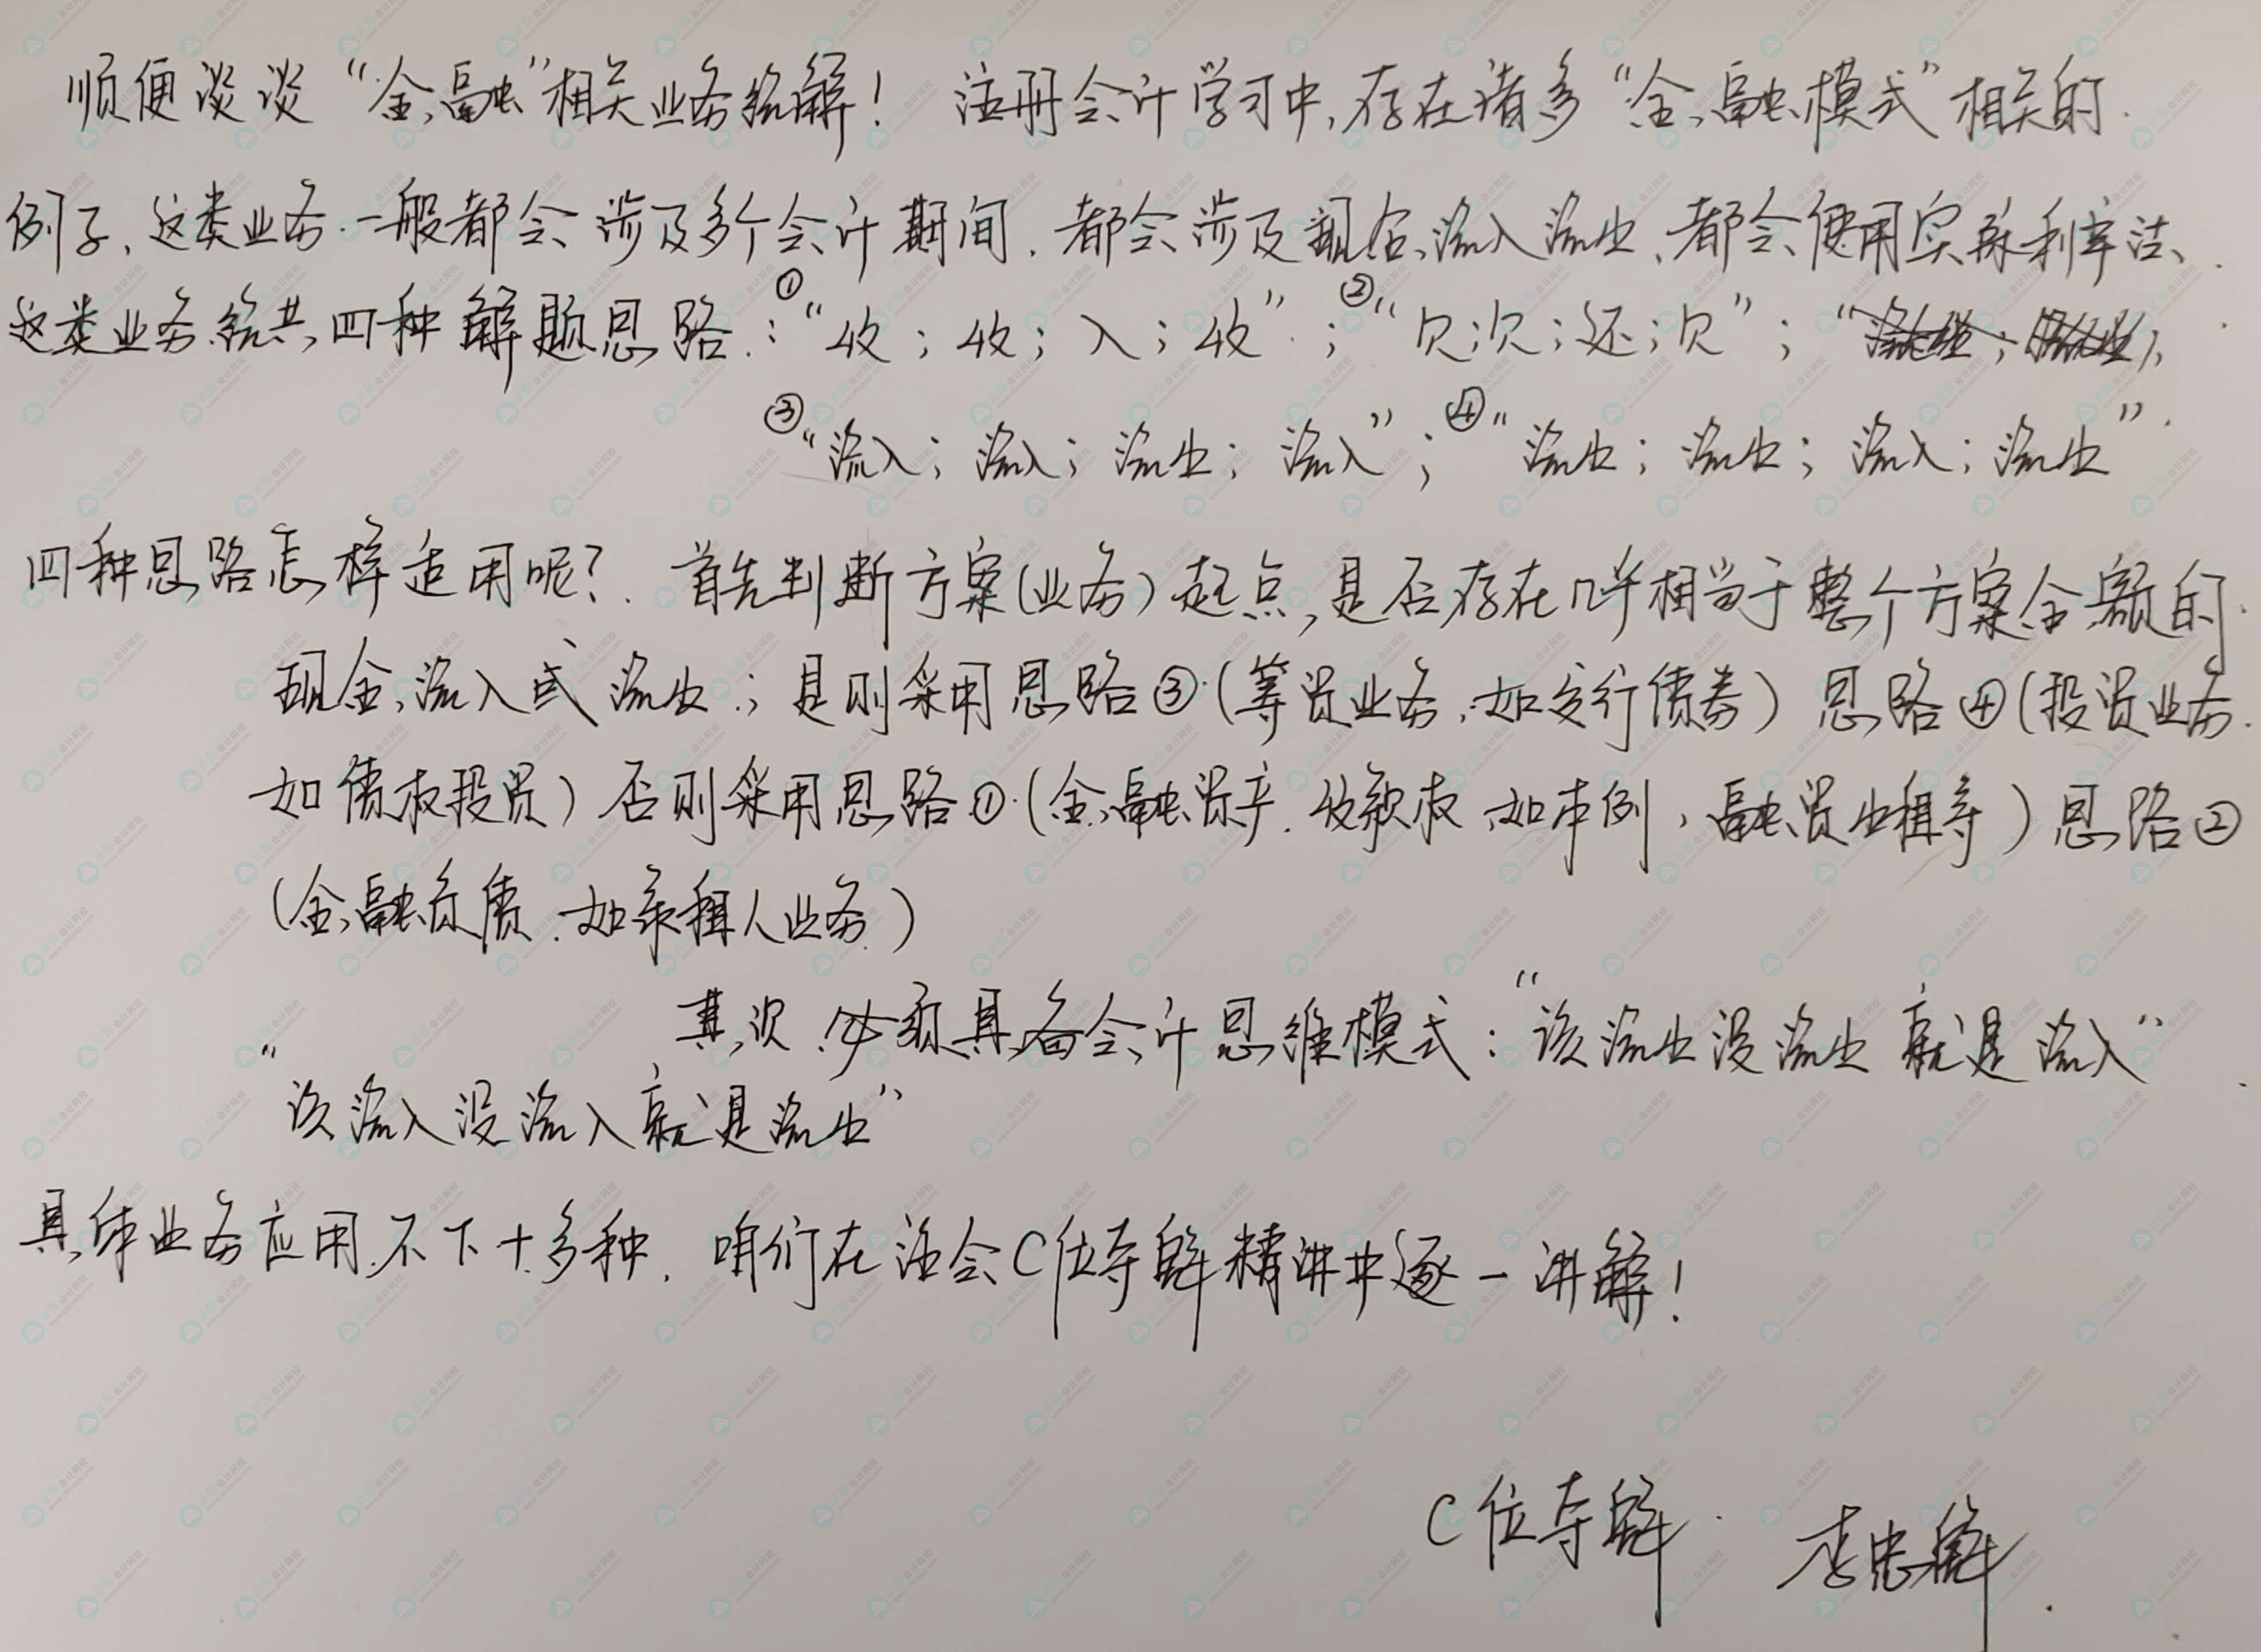 顺便谈谈“金融”相关业务统解！ 注册会计学习中,存在诸多“金融模式”相关的.
例子,这类业务一般都会涉及多个会计期间.都会涉及现金流入流出、都会使用实际利率法、
这类业务统共四种解题思路:①“收;收;入;收”;②“欠;欠;还;欠”;“
③“流入;流入;流出;流入”;④“流出;流出;流入;流出”.
四种思路怎样适用呢?.首先判断方案(业务)起点,是否存在几乎相当于整个方案金额的
现金流入或流出;是则采用思路③(筹资业务,如发行债券)思路④(投资业务.
如债权投资)否则采用思路①(金融资产.收款权,如本例,融资出租等)思路②
(金融负债.如承租人业务)
其次必须具备会计思维模式:“该流出没流出就是流入”
“该流入没流入就是流出”
具体业务应用不下十多种.咱们在注会C位夺魁精讲中逐一讲解!
C位夺魁.李忠魁.
正保会计网校